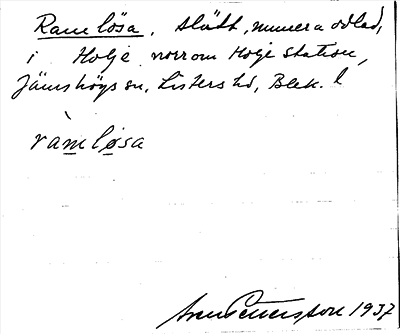 Ramlösa, slätt, numera odlad,
i Holje norr om Holje station,
Jämshögs sn, Listers hd, Blek. l
ràmlösa
Sven Pettersson 1937